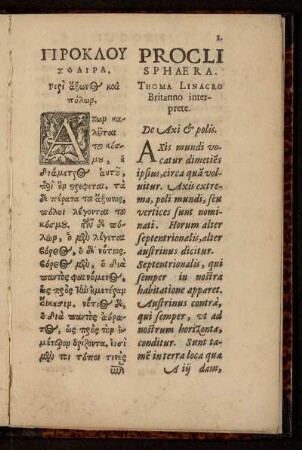 1.
ΠΡΟΚΛΟΥ
ΣΦΑΙΡΑ.
περὶ ἀξωνΘ καὶ
πόλωρ.
Αξωρ καλεῖται
τοῦ κόσμου,
ἡ
διάμετρΘ αὐτοῦ,
περὶ ἣρ στρέφεται. τὰ
δὲ πέρατα τοῦ ἄξωνΘ,
πόλοι λέγονται τοῦ
κόσμου. τῶν δὲ πόλωρ,
ὁ μὲρ λέγεται
ΒόρειΘ, ὁ δὲ νότιΘ.
ΒόρειΘ μὲρ, ὁ διὰ
παντὸς φαινόμενΘ
ὡς πρὸς τὴν ἡμετέραρ
οἴκησιρ. νότιΘ δὲ,
ὁ διὰ παντὸς ἀόρατΘ,
ὡς πρὸς τὸρ ἡμέτερορ
ὁρίζοντα. εἰσὶ
μὲρ τοι τόποι τινὲς
PROCLI
SPHAERA.
THOMA LINACRO
Britanno interprete.
De Axi & polis.
AXis mundi vocatur
dimetiẽs
ipsius, circa quã voluitur.
Axis extrema,
poli mundi, seu
vertices sunt nominati.
Horum alter
septentrionalis, alter
austrinus dicitur.
Septentrionalis, qui
semper in nostra
habitatione apparet.
Austrinus contrà,
qui semper, vt ad
nostrum horizonta,
conditur. Sunt tamẽ
in terra loca quæ
A iij dam,